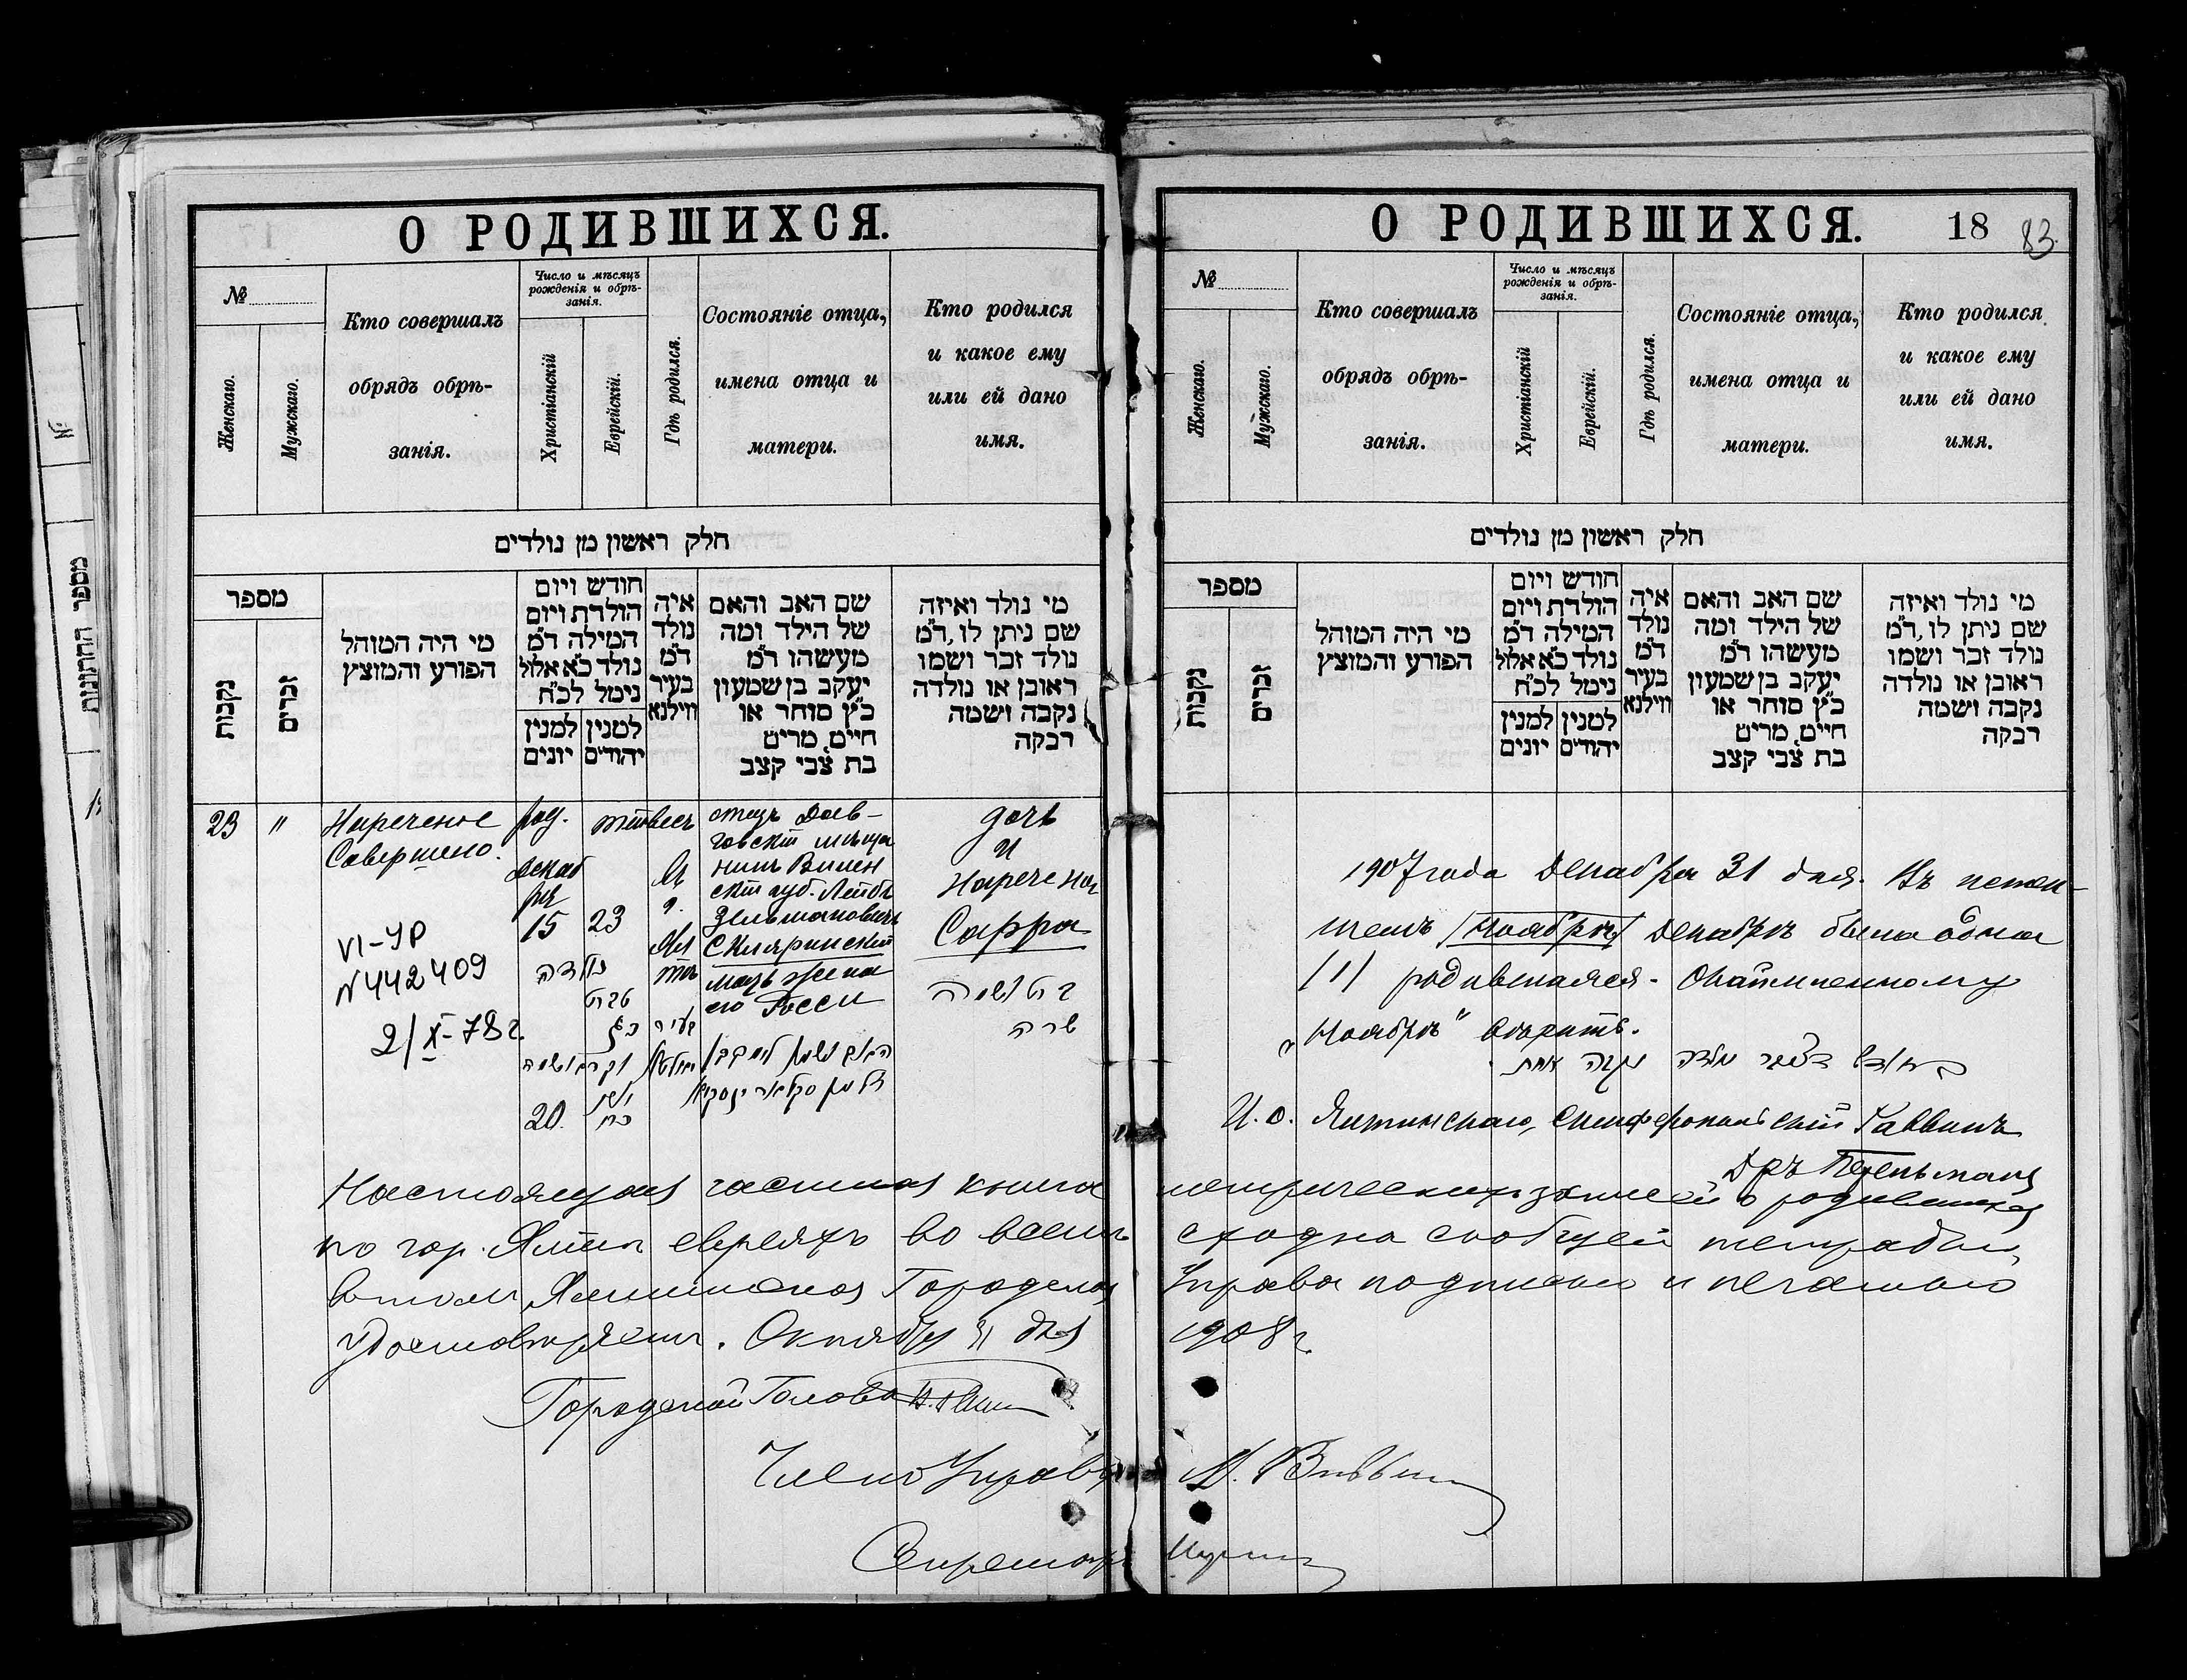 О РОДИВШИХСЯ.
№
Женскаго.
Мужскаго.
Кто совершалъ
обрядъ обрѣ-
занія.
Число и мѣсяцъ
рожденія и обрѣ-
занія.
Христіанскій
Еврейскій.
Гдѣ родился.
Состояніе отца,
имена отца и
матери.
Кто родился
и какое ему
или ей дано
имя.
חלק ראשון מן נולדים
מספר
נקבות
זכרים
מי היה המוהל
הפורע והמוצץ
חודש ויום
הולדת ויום
המילה ד״מ
נולד כ״א אלול
נימל לכ״ח
למנין למנין
יהודים יונים
איה
נולד
ד״מ
בעיר
ווילנא
שם האב והאם
של הילד ומה
מעשהו ד״מ
יעקב בן שמעון
כ״ץ סוחר או
חייט, מרים
בת צבי קצב
מי נולד ואיזה
שם ניתן לו, ד״מ
נולד זכר ושמו
ראובן או נולדה
נקבה ושמה
רבקה
23
"
Наречение
Совершено.
VI-УР
N442409
2/X-78г.
род.
декаб
ря
15
נולדה
20.
23
טבת
כג
כח
Въ
г.
Ял
тѣ
בעיר
יאלטא
отецъ Дав-
говскій мѣща
нинъ Вилен
ской губ. Лейбъ
Зельмановичъ
Скляринскій
мать жена
его Песси
дочь
и
Наречена
Сарра
בת ושמה
שרה
Настоящая частная книга метрическихъ записей о родившихся
по гор. Ялтѣ евреяхъ во всемъ сходна сообщей тетрадью,
въ томъ Ялтинская Городская Управа подписью и печатью
удостовѣряетъ. Октября 31 дня 1908 г.
Городской Голова
Членъ Управы
Секретарь
О РОДИВШИХСЯ.
18
83.
№
Женскаго.
Мужскаго.
Кто совершалъ
обрядъ обрѣ-
занія.
Число и мѣсяцъ
рожденія и обрѣ-
занія.
Христіанскій
Еврейскій.
Гдѣ родился.
Состояніе отца,
имена отца и
матери.
Кто родился
и какое ему
или ей дано
имя.
חלק ראשון מן נולדים
מספר
נקבות
זכרים
מי היה המוהל
הפורע והמוצץ
חודש ויום
הולדת ויום
המילה ד״מ
נולד כ״א אלול
נימל לכ״ח
למנין למנין
יהודים יונים
איה
נולד
ד״מ
בעיר
ווילנא
שם האב והאם
של הילד ומה
מעשהו ד״מ
יעקב בן שמעון
כ״ץ סוחר או
חייט, מרים
בת צבי קצב
מי נולד ואיזה
שם ניתן לו, ד״מ
נולד זכר ושמו
ראובן או נולדה
נקבה ושמה
רבקה
1907 года Декабря 31 дня. Въ истек-
шемъ /Ноябрѣ/ Декабрѣ была одна
/1/ родившаяся.
„Ноябрѣ" вѣрить.
בחודש דצמבר נולדה נקבה אחת
И. о. Ялтинскаго, Симферопольскій Раввинъ
Д-ръ